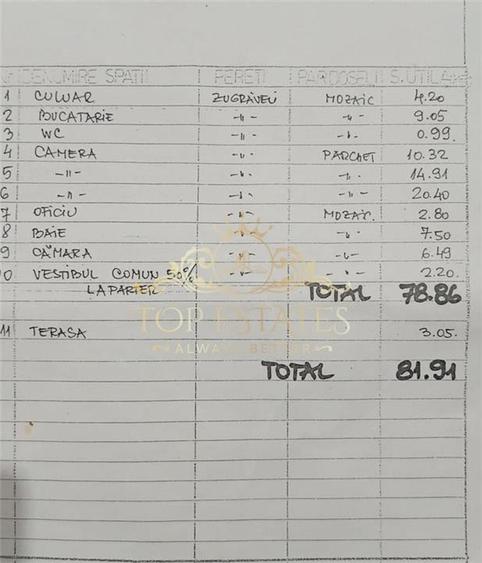 DENUMIRE SPATII PERETI PARDOSELI S.UTILA
1 CULUAR ZUGRĂVELI MOZAIC 4.20
2 BUCATARIE -"- -"- 9.05
3 WC -"- -"- 0.99
4 CAMERA -"- PARCHET 10.32
5 -"- -"- -"- 14.91
6 -"- -"- -"- 20.40
7 OFICIU -"- MOZAIC. 2.80
8 BAIE -"- -"- 7.50
9 CĂMARA -"- -"- 6.49
0 VESTIBUL COMUN 50% -"- -"- 2.20.
LA PARTER TOTAL 78.86
TOP ESTATES
11 TERASA 3.05.
ALWAYS BETTER
TOTAL 81.91